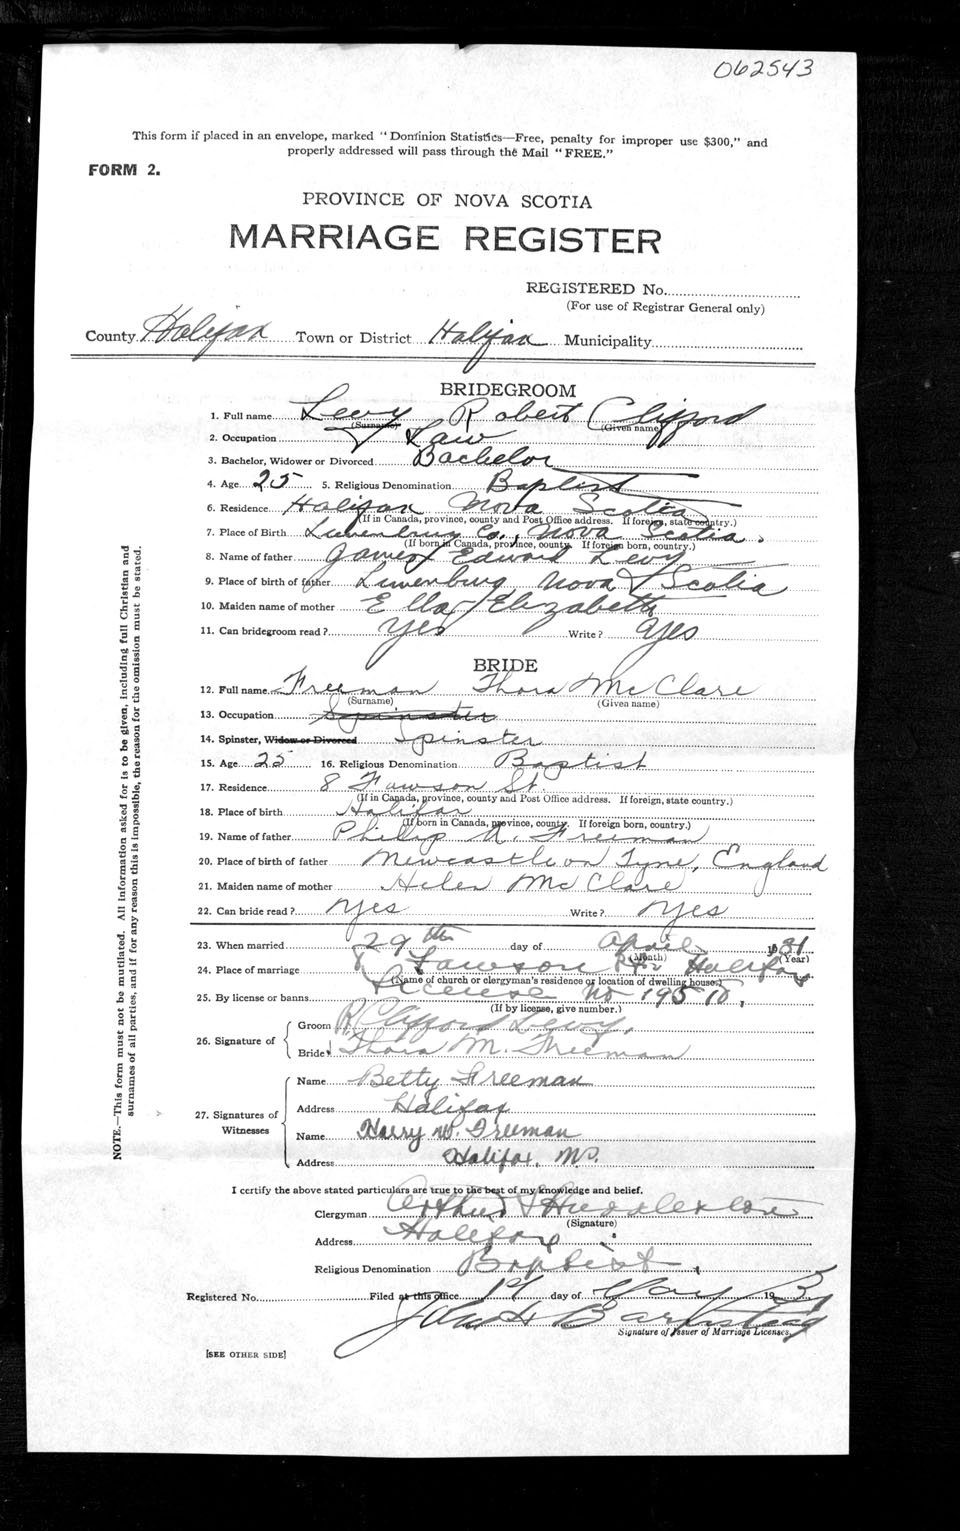 062543
This form if placed in an envelope, marked "Dominion Statistics—Free, penalty for improper use $300," and
properly addressed will pass through the Mail "FREE."
FORM 2.
PROVINCE OF NOVA SCOTIA
MARRIAGE REGISTER
REGISTERED No.
(For use of Registrar General only)
County Halifax Town or District Halifax Municipality
BRIDEGROOM
1. Full name Levy Robert Clifford
(Surname) (Given name)
2. Occupation Law
3. Bachelor, Widower or Divorced Bachelor
4. Age 25 5. Religious Denomination Baptist
6. Residence Halifax Nova Scotia
(If in Canada, province, county and Post Office address. If foreign, state country.)
7. Place of Birth Lunenburg Co., Nova Scotia.
(If born in Canada, province, county. If foreign born, country.)
8. Name of father James Edward Levy
9. Place of birth of father Lunenburg Nova Scotia
10. Maiden name of mother Ella Elizabeth
11. Can bridegroom read? Yes Write? Yes
BRIDE
12. Full name Freeman Thora McClare
(Surname) (Given name)
13. Occupation Spinster
14. Spinster, Widow or Divorced Spinster
15. Age 25 16. Religious Denomination Baptist
17. Residence 8 Fawson St.
(If in Canada, province, county and Post Office address. If foreign, state country.)
18. Place of birth Halifax
(If born in Canada, province, county. If foreign born, country.)
19. Name of father Philip A. Freeman
20. Place of birth of father Newcastle on Tyne, England
21. Maiden name of mother Helen McClare
22. Can bride read? Yes Write? Yes
23. When married 29th day of April 1931
(Month) (Year)
24. Place of marriage 8 Fawson St Halifax
(Name of church or clergyman's residence or location of dwelling house.)
25. By license or banns License No 19510,
(If by license, give number.)
26. Signature of
Groom R Clifford Levy.
Bride Thora M. Freeman
27. Signatures of Witnesses
Name Betty Freeman
Address Halifax
Name Harry W. Freeman
Address Halifax, N.S.
I certify the above stated particulars are true to the best of my knowledge and belief.
Clergyman Arthur
(Signature)
Address Halifax
Religious Denomination Baptist
Registered No. Filed at this office 1st day of May 1931
John H Barnstead
Signature of Issuer of Marriage Licenses.
[SEE OTHER SIDE]
NOTE.—This form must not be mutilated. All information asked for is to be given, including full Christian and
surnames of all parties, and if for any reason this is impossible, the reason for the omission must be stated.